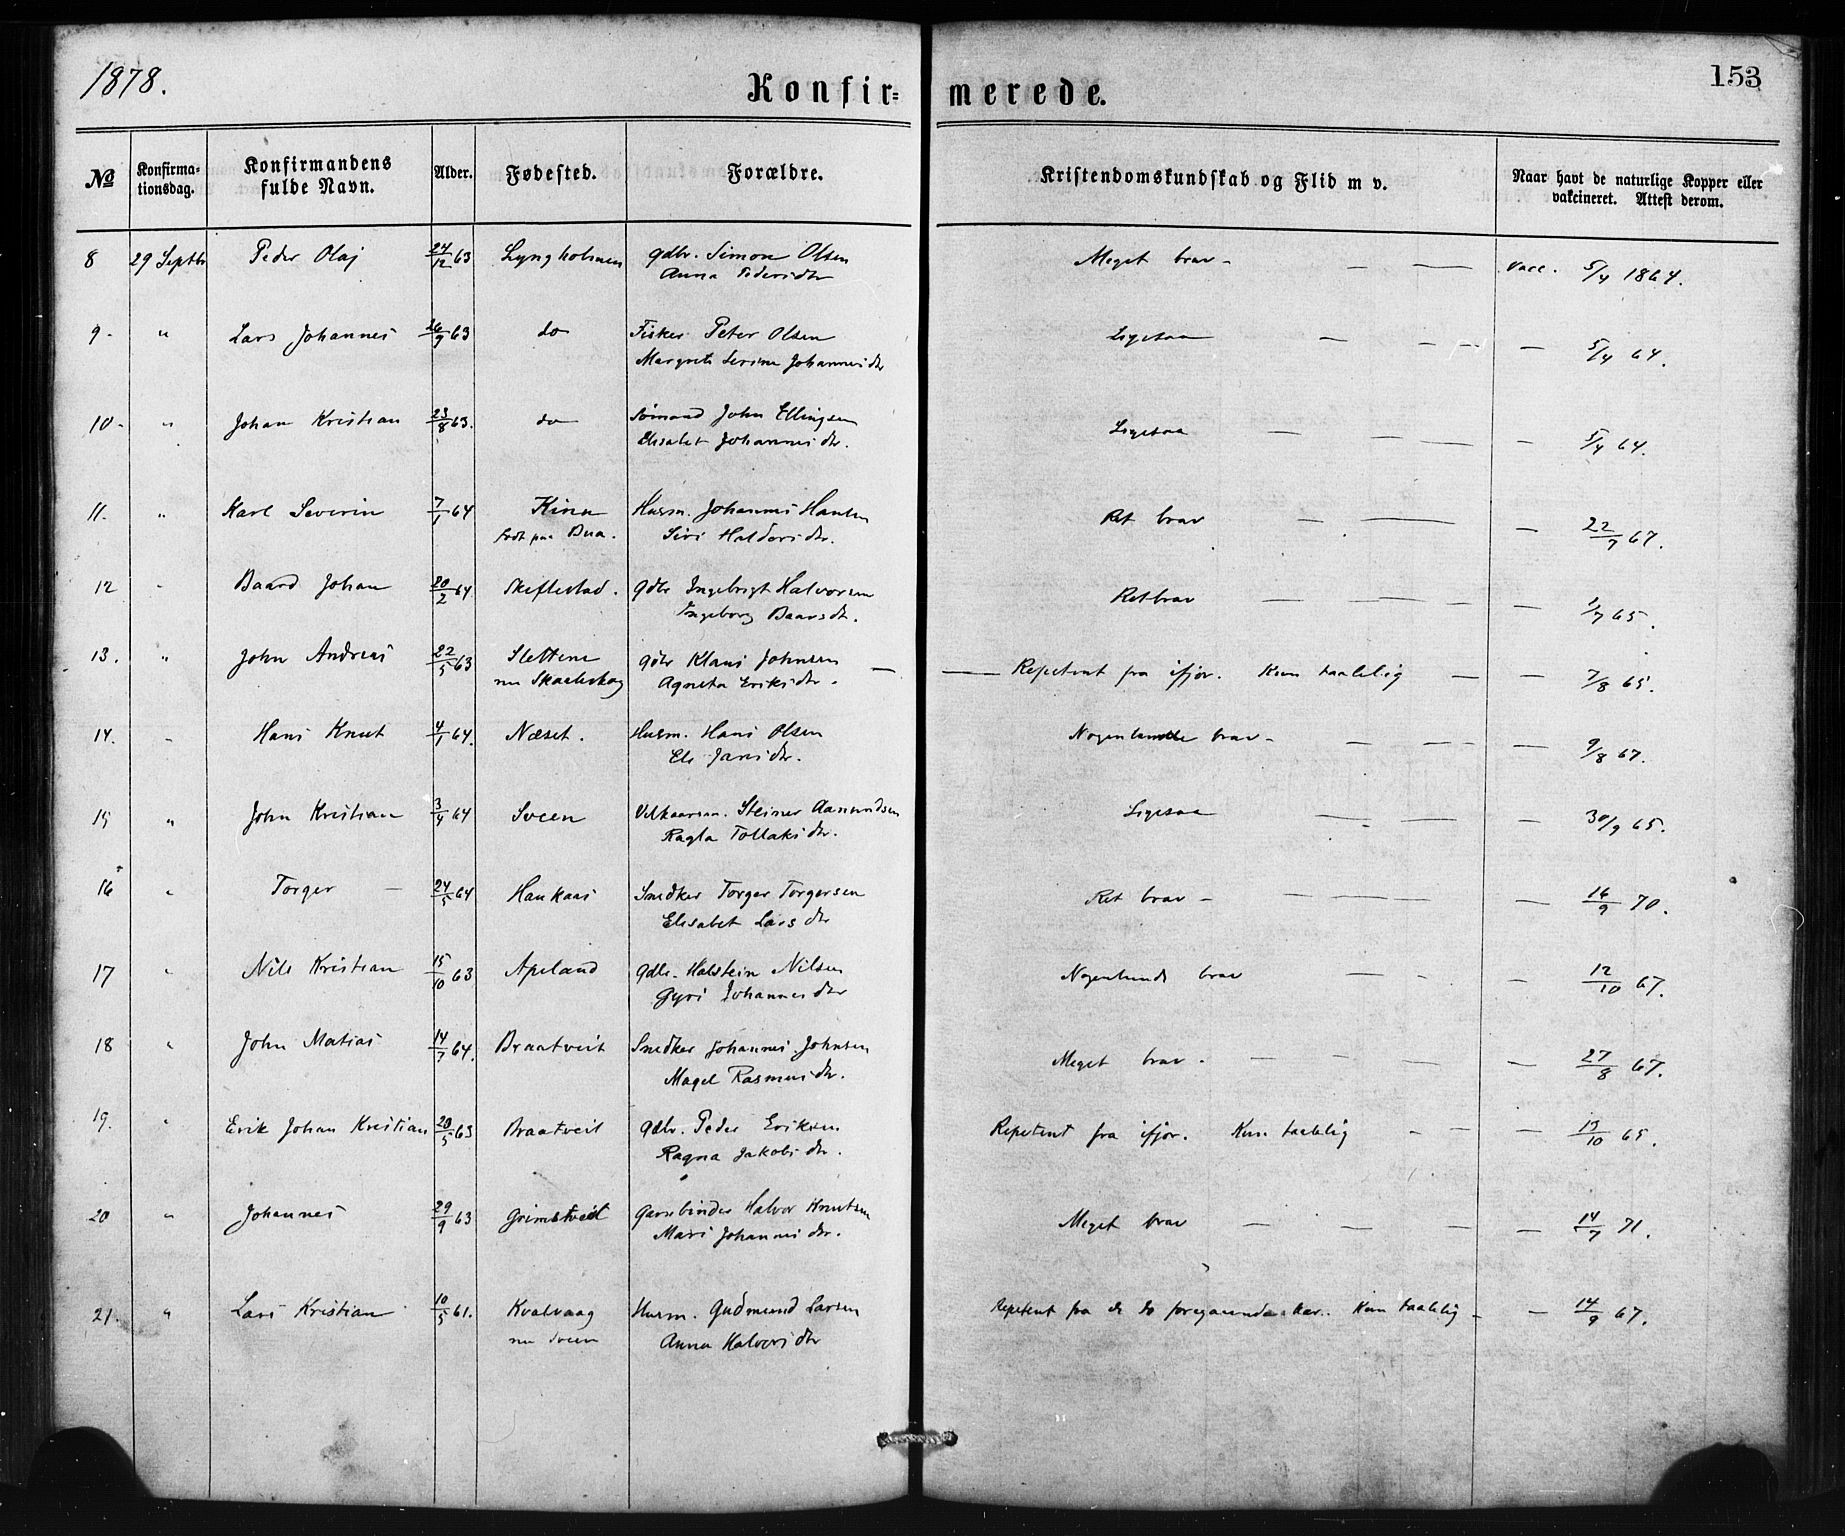 1878.
Konfir= merede.
153
No Konfirma= tionsdag. Konfirmandens fulde Navn. Alder. Fødested. Forældre. Kristendomskundskab og Flid m v. Naar havt de naturlige Kopper eller vakcineret. Attest derom.
8 29 Septbr Peder Olaj 24/12 63 Lyngholmen gdbr. Simon Olsen Meget brav - — — vacc. 5/4 1864.
Anna Pedersdtr
9 - " Lars Johannes 26/9 63 do Fisker Peter Olsen Ligesaa — — — 5/4 64.
Margrete Serine Johannesdtr
10 - " Johan Kristian 23/8 63. do Sømand John Ellingsen Ligesaa — — — — 5/4 64.
Elisabet Johannesdtr.
11. " Karl Severin 7/1 64 Kinn Husm. Johannes Hansen Ret brav — — — 22/7 67.
født paa Bua. Siri Haldorsdtr.
12 " Baard Johan 20/2 64 Skeflestad. gdbr Ingebrigt Halvorsen Ret brav — — — — 1/7 65.
Ingeborg Baarsdtr.
13. " John Andreas 22/5 63 Slettene gdbr Klaus Johnsen — — Repetent fra ifjor. Kun taalelig — — 7/8 65.
nu Skaaleskog Agneta Eriksdtr.
14. " Hans Knut 4/1 64. Næset. Husm. Hans Olsen Nogenlunde brav - — — — 9/8 67.
Eli Jansdtr.
15 " John Kristian 3/4 64 Sveen Vilkaarsm. Steiner Aamundsen Ligesaa — — — 30/9 65.
Ragla Tollaksdtr.
16 " Torger — 24/5 64 Haukaas Snedker Torger Torgersen Ret brav - — — — 16/9 70.
Elisabet Larsdtr
17 " Nils Kristian 15/10 63 Apeland gdbr. Halstein Nilsen Nogenlunde brav — - — 12/10 67.
Gyri Johannesdtr
18 " John Matias 14/7 64. Braatveit Snedker Johannes Johnsen Meget brav. — — — — 27/8 67.
Magel Rasmusdtr.
19. " Erik Johan Kristian 20/5 63 Braatveit gdbr. Peder Eriksen Repetent fra ifjor. Kun taalelig — — — 13/10 65.
Ragna Jakobsdtr.
20 " Johannes 29/9 63 Grimstveit Garnbinder Halvor Knutsen Meget brav — — — — 14/7 71.
Mari Johannesdtr.
21. " Lars Kristian 10/5 61. Kvalvaag Husm. Gudmund Larsen Repetent fra de to foregaaende Aar. Kun taalelig - — 14/9 67.
nu Sveen Anna Halvorsdtr